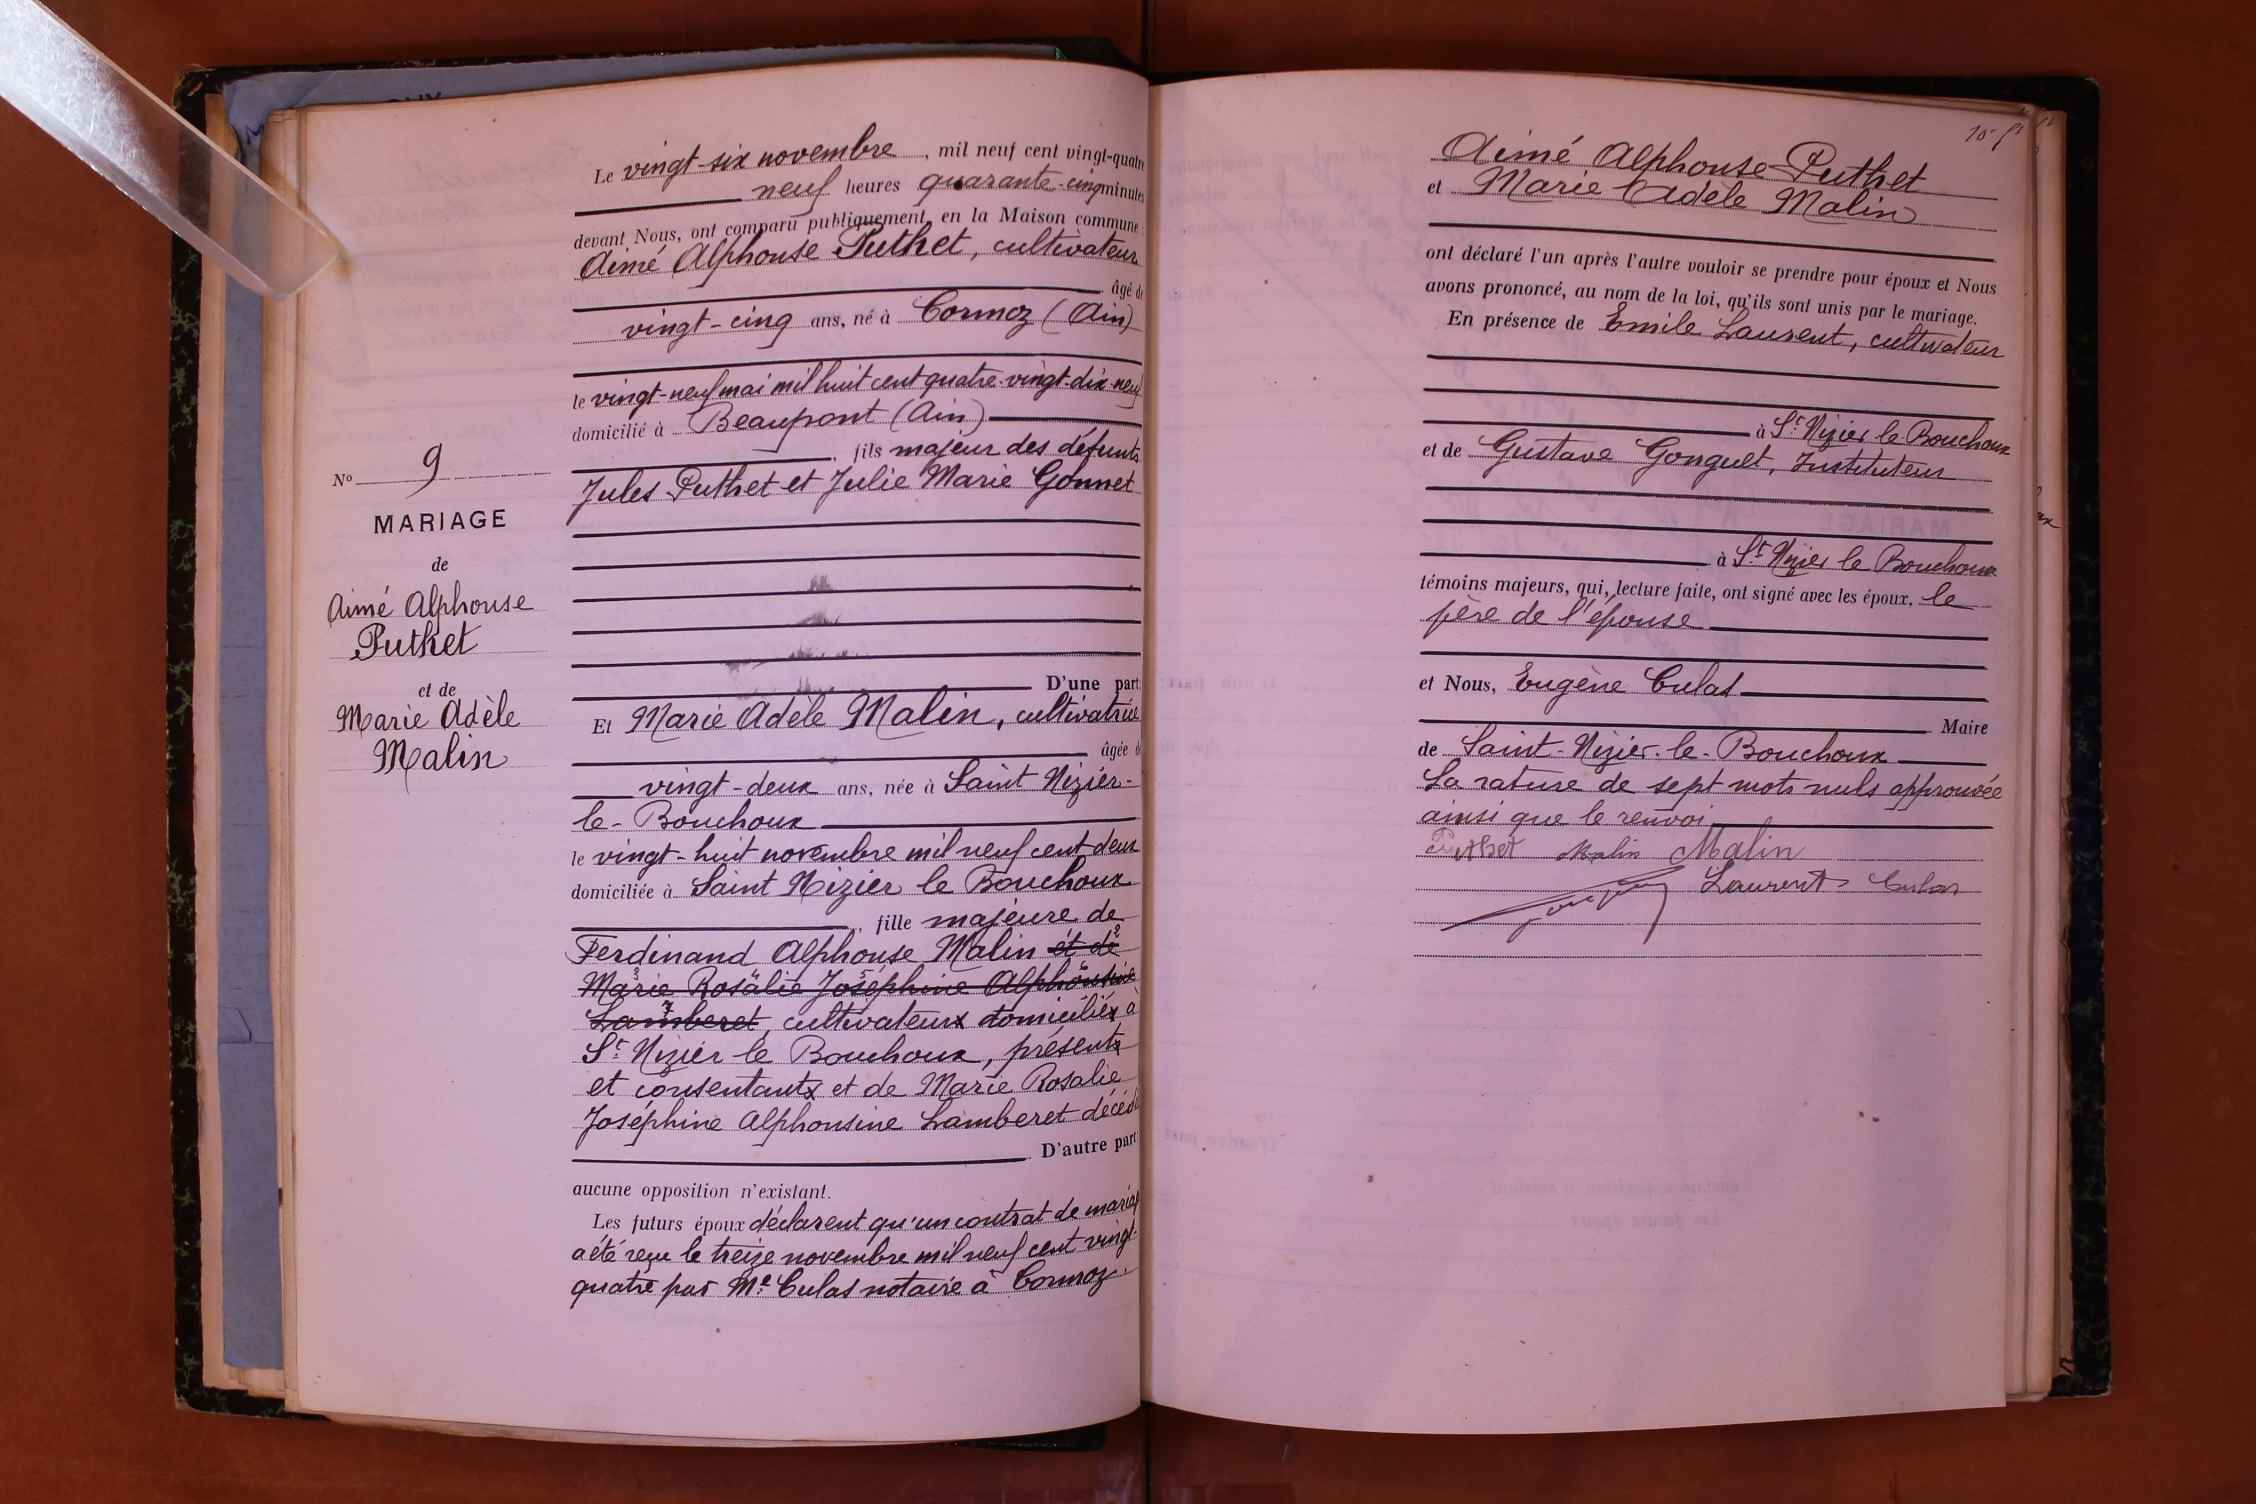 N° 9
MARIAGE
de
Aimé Alphonse
Puthet
et de
Marie Adèle
Malin
Le vingt-six novembre, mil neuf cent vingt-quatre
neuf heures quarante-cinq minutes
devant Nous, ont comparu publiquement en la Maison commune :
Aimé Alphonse Puthet, cultivateur
âgé de
vingt-cinq ans, né à Cormoz (Ain)
le vingt-neuf mai mil huit cent quatre-vingt-dix-neuf
domicilié à Beaupont (Ain)
, fils majeur des défunts
Jules Puthet et Julie Marie Gonnet
D'une part
Et Marie Adèle Malin, cultivatrice
âgée d
vingt-deux ans, née à Saint Nizier-
le-Bouchoux
le vingt-huit novembre mil neuf cent deux
domiciliée à Saint Nizier le Bouchoux
, fille majeure de
Ferdinand Alphonse Malin et de
Marie Rosalie Joséphine Alphonsine
Lamberet, cultivateurx domiciliéx à
St Nizier le Bouchoux, présentx
et consentantx et de Marie Rosalie
Joséphine Alphonsine Lamberet décéd
D'autre part
aucune opposition n'existant.
Les futurs époux déclarent qu'un contrat de mariag
a été reçu le treize novembre mil neuf cent vingt-
quatre par Me Culas notaire à Cormoz.
Aimé Alphonse Puthet
et Marie Adèle Malin
ont déclaré l'un après l'autre vouloir se prendre pour époux et Nous
avons prononcé, au nom de la loi, qu'ils sont unis par le mariage.
En présence de Emile Laurent, cultivateur
à St Nizier le Bouchoux
et de Gustave Gonguet, Instituteur
à St Nizier le Bouchoux
témoins majeurs, qui, lecture faite, ont signé avec les époux, le
père de l'épouse
et Nous, Eugène Culas
Maire
de Saint-Nizier-le-Bouchoux
La rature de sept mots nuls approuvée
ainsi que le renvoi
Puthet Malin Malin
Laurent Culas